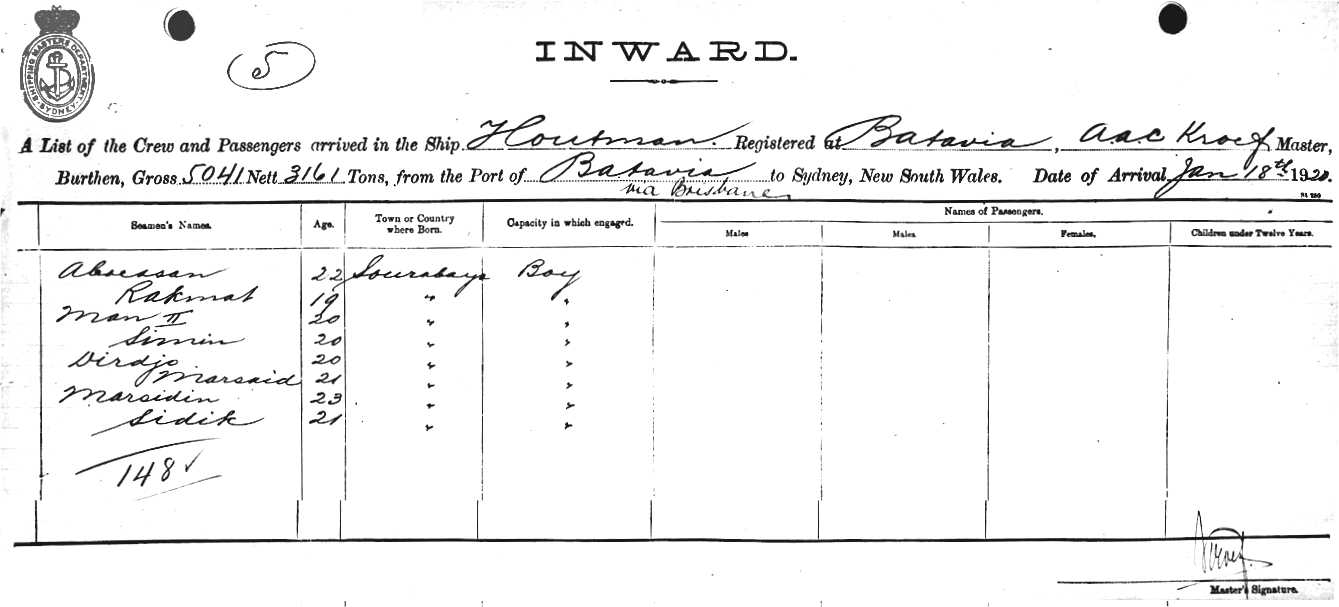 SHIPPING MASTERS DEPARTMENT SYDNEY
5
INWARD.
A List of the Crew and Passengers arrived in the Ship Houtman. Registered at Batavia, A.A.C Kroef Master,
Burthen, Gross 5041 Nett 3161 Tons, from the Port of Batavia to Sydney, New South Wales. Date of Arrival Jan 18th 1920.
via Brisbane
Seamen's Names. Age. Town or Country where Born. Capacity in which engaged. Names of Passengers.
Males Males Females, Children under Twelve Years.
22 Sourabaya Boy
Rakmat 19 " "
Man II 20 " "
Simin 20 " "
Dirdjo 20 " "
Marsaid 21 " "
Marsidin 23 " "
Sidik 21 " "
148 ✓
Master's Signature.